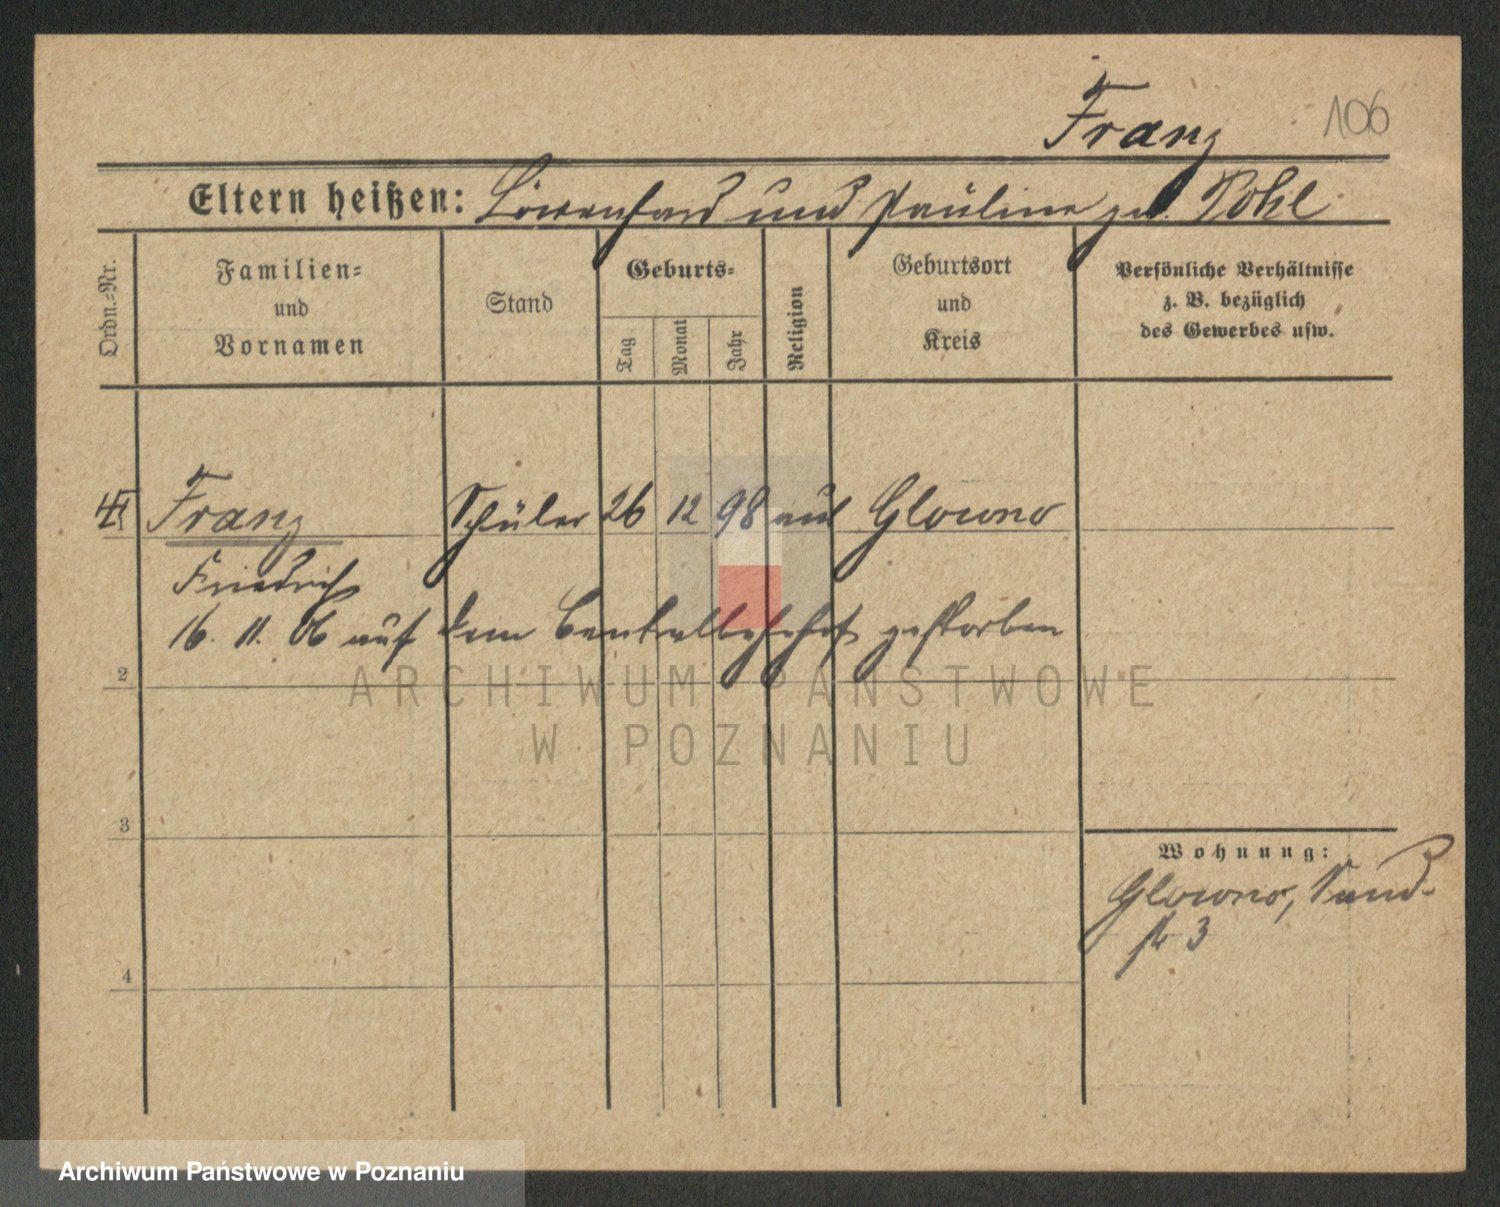 Franz
106
Eltern heißen: und Pauline geb. Pohl
Ordn.-Nr.
Familien-
und
Vornamen
Stand
Geburts-
Tag
Monat
Jahr
Religion
Geburtsort
und
Kreis
Persönliche Verhältnisse
z. B. bezüglich
des Gewerbes usw.
Franz Schüler 26 12 98 aus Glowno
Friedrich
16. 11. 06 auf dem Centralbahnhof gestorben
2
3
4
Wohnung:
Glowno, Sand-
str 3
ARCHIWUM PAŃSTWOWE
W POZNANIU
Archiwum Państwowe w Poznaniu